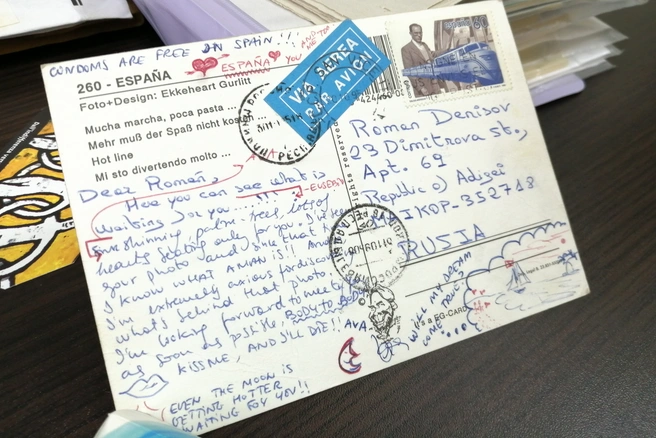 CONDOMS ARE FREE IN SPAIN!!!
ESPAÑA
YOU AND ME TOO
260 - ESPAÑA
Foto+Design: Ekkeheart Gurlitt
Mucha marcha, poca pasta ...
Mehr muß der Spaß nicht
Hot line
Mi sto divertendo molto ...
VIA AEREA
PAR AVION
España
Dear Roman,
Here you can see what is
waiting for you
sun shinning, palm trees, lots of
hearts beating only for you.
your photo and
I know what A MAN is!! And
I'm extremely anxious for
what's behind that photo
I'm looking forward to meet
as soon as posible, BODY TO BODY
KISS ME, AND I'LL DIE!! AVA
EVEN THE MOON IS
GETTING HOTTER
WAITING FOR YOU!!
Roman Denisov
23 Dimitrova st.,
Apt. 69
Republic of Adigei
MAIKOP-352748
RUSIA
WILL MY DREAM
COME TRUE?
It's a EG-CARD